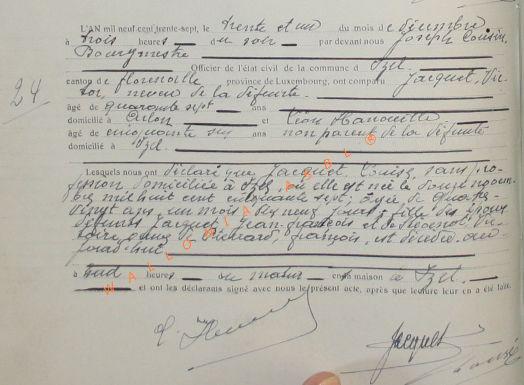 L'AN mil neuf cent trente-sept, le trente et un du mois de décembre
à trois heures du soir par devant nous Joseph Cousin,
Bourgmestre
Officier de l'état civil de la commune d'Izel
canton de Florenville province de Luxembourg, ont comparu Jacquet, Vic-
tor, neveu de la défunte.
24
âgé de quarante sept ans
domicilié à et Léon Hanouille
âgé de cinquante six ans non parent de la défunte
domicilié à Izel.
Lesquels nous ont déclaré que Jacquet, Louise, sans pro-
fession domiciliée à Izel, où elle est née le douze novem-
bre mil huit cent cinquante sept, âgée de quatre-
vingt ans un mois dix neuf jours, fille des époux
défunts Jacquet, Jean-François et de
veuve de François, est décédée au-
jourd'hui
à huit heures du matin en sa maison à Izel.
et ont les déclarants signé avec nous le présent acte, après que lecture leur en a été faite.
Jacquet
WALLONIA ASBL ®